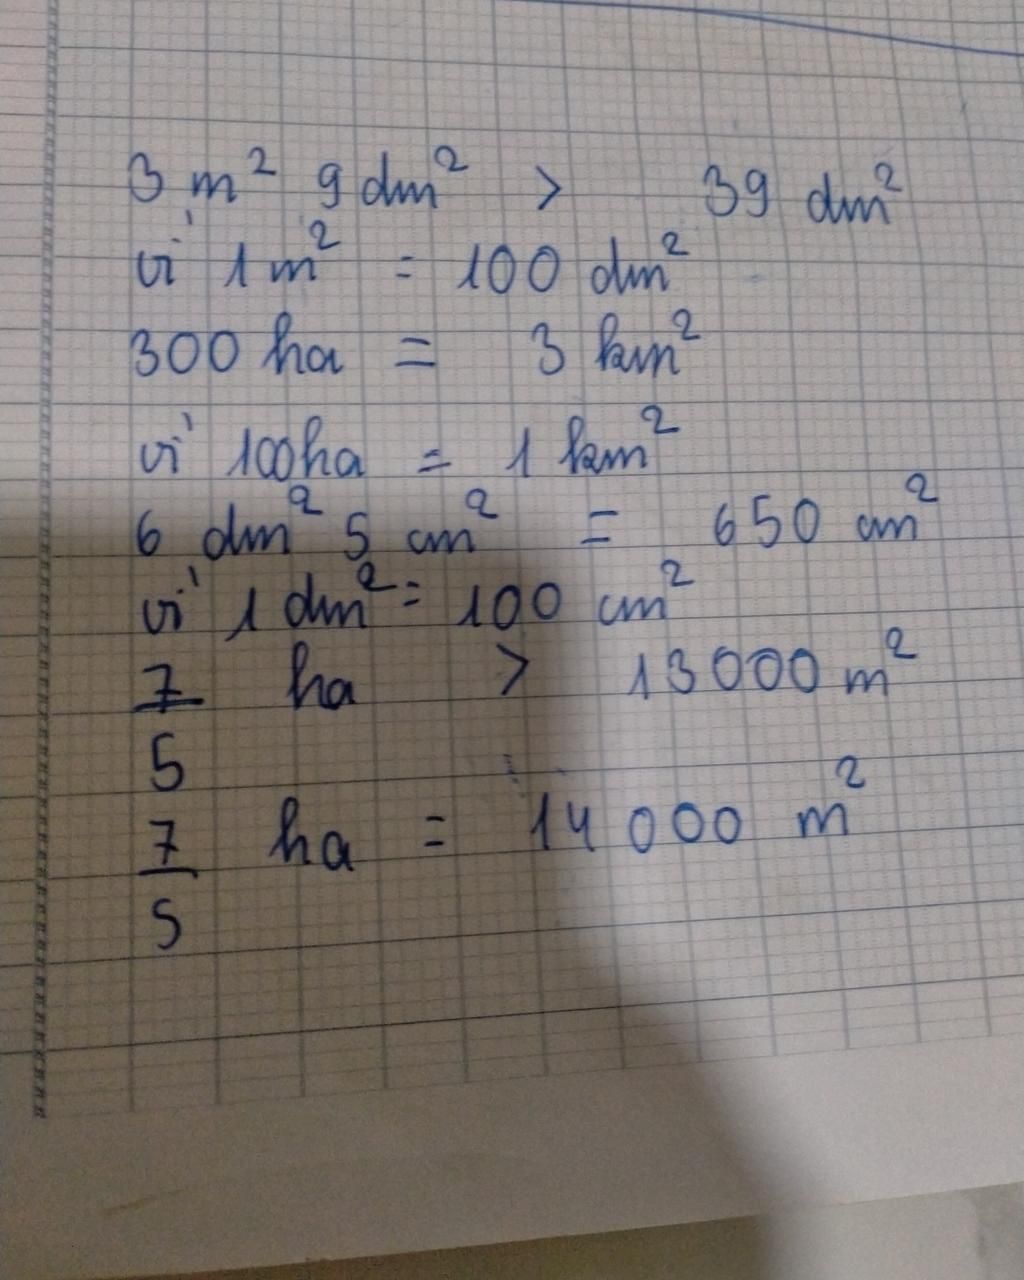 3 m² 9 dm² > 39 dm²
vì 1 m² = 100 dm²
300 ha = 3 km²
vì 100ha = 1 km²
6 dm² 5 cm² = 650 cm²
vì 1 dm² = 100 cm²
7/5 ha > 13000 m²
7/5 ha = 14 000 m²